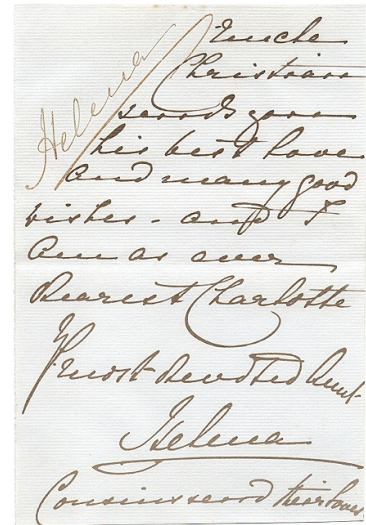 Helena
Uncle
Christian
sends you
his best love
and many good
wishes - and I
am as ever
Dearest Charlotte
Yr most devoted Aunt
Helena
Cousins send their loves